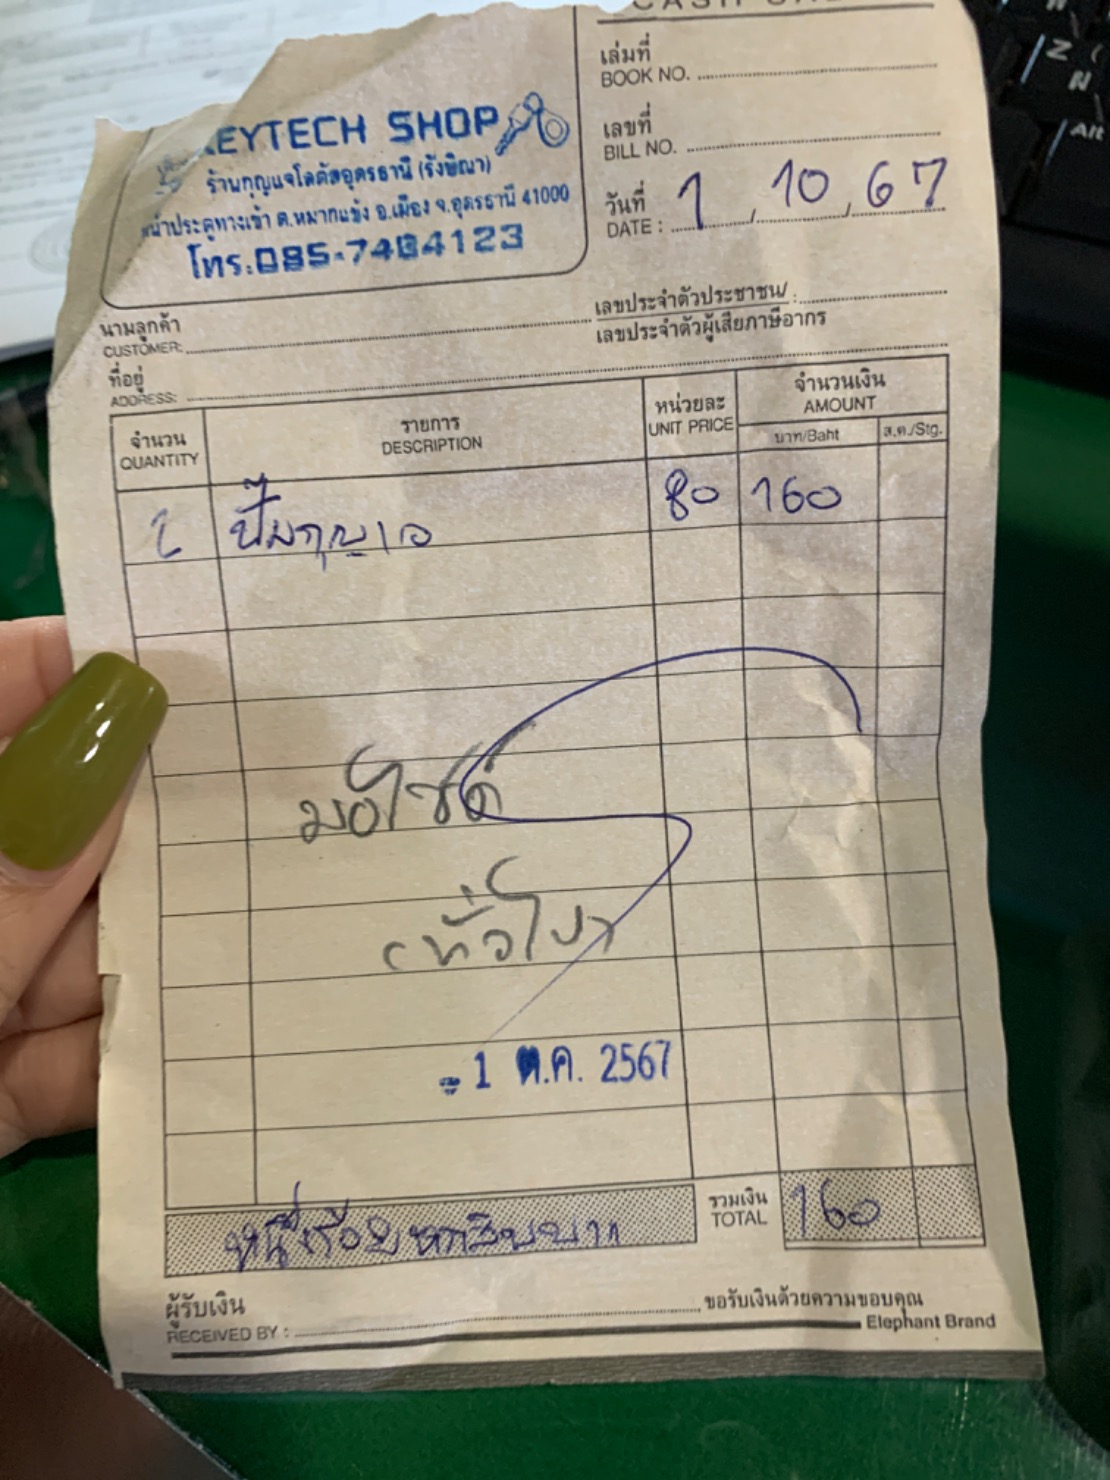 CASH SALE
เล่มที่
BOOK NO.
เลขที่
BILL NO.
วันที่
DATE : 1 / 10 / 67
KEYTECH SHOP
ร้านกุญแจโลตัสอุดรธานี (รังษิณา)
หน้าประตูทางเข้า ต.หมากแข้ง อ.เมือง จ.อุดรธานี 41000
โทร:085-7464123
นามลูกค้า
CUSTOMER:
เลขประจำตัวประชาชน/ :
เลขประจำตัวผู้เสียภาษีอากร
ที่อยู่
ADDRESS:
จำนวน
QUANTITY
รายการ
DESCRIPTION
หน่วยละ
UNIT PRICE
จำนวนเงิน
AMOUNT
บาท/Baht ส.ต./Stg.
2 ปั๊มกุญแจ 80 160
มอไซด์
(ทั่วไป)
- 1 ต.ค. 2567
หนึ่งร้อยหกสิบบาท
รวมเงิน
TOTAL 160
ผู้รับเงิน
RECEIVED BY :
ขอรับเงินด้วยความขอบคุณ
Elephant Brand